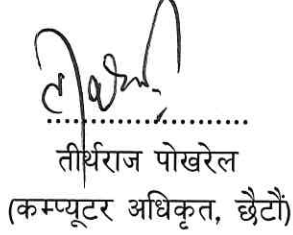 तीर्थराज पोखरेल
(कम्प्यूटर अधिकृत, छैटौं)